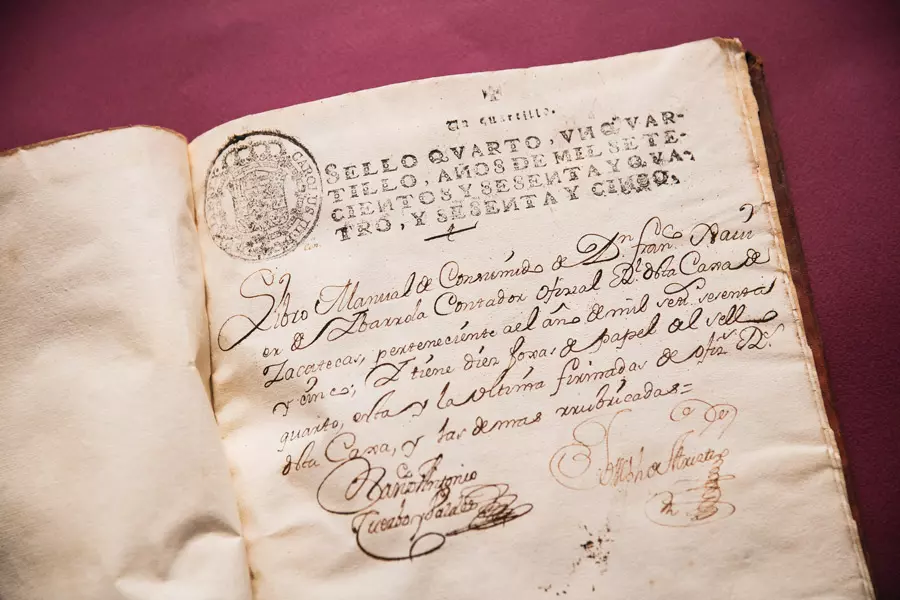 Un quartillo.
SELLO QVARTO, VN QVAR-
TILLO, AÑOS DE MIL SETE-
CIENTOS Y SESENTA Y QUA-
TRO, Y SESENTA Y CINCO.
CAROLUS III
Libro Manual de Consumido de Dn. Franco. Xavi
er de Ibarrola Contador Oficial Rl. de esta Caxa de
Zacatecas, perteneciente a el año de mil setts. sesenta
y cinco; Y tiene diez foxas de papel de el sello
quarto, esta y la ultima firmadas de ofs. Rs.
de esta Caxa, y las demas rrubricadas=
Antonio